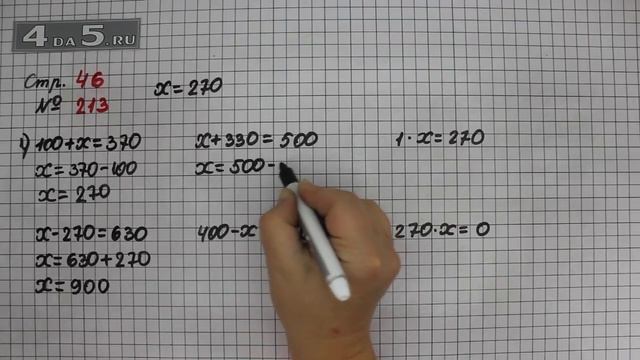 4 DA 5.RU
Стр. 46
№ 213
x = 270
1) 100 + x = 370
x = 370 - 100
x = 270
x + 330 = 500
x = 500 -
1 · x = 270
x - 270 = 630
x = 630 + 270
x = 900
400 - x
270 · x = 0